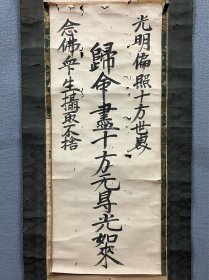 光明徧照十方世界
歸命盡十方无㝵光如來
念佛衆生攝取不捨